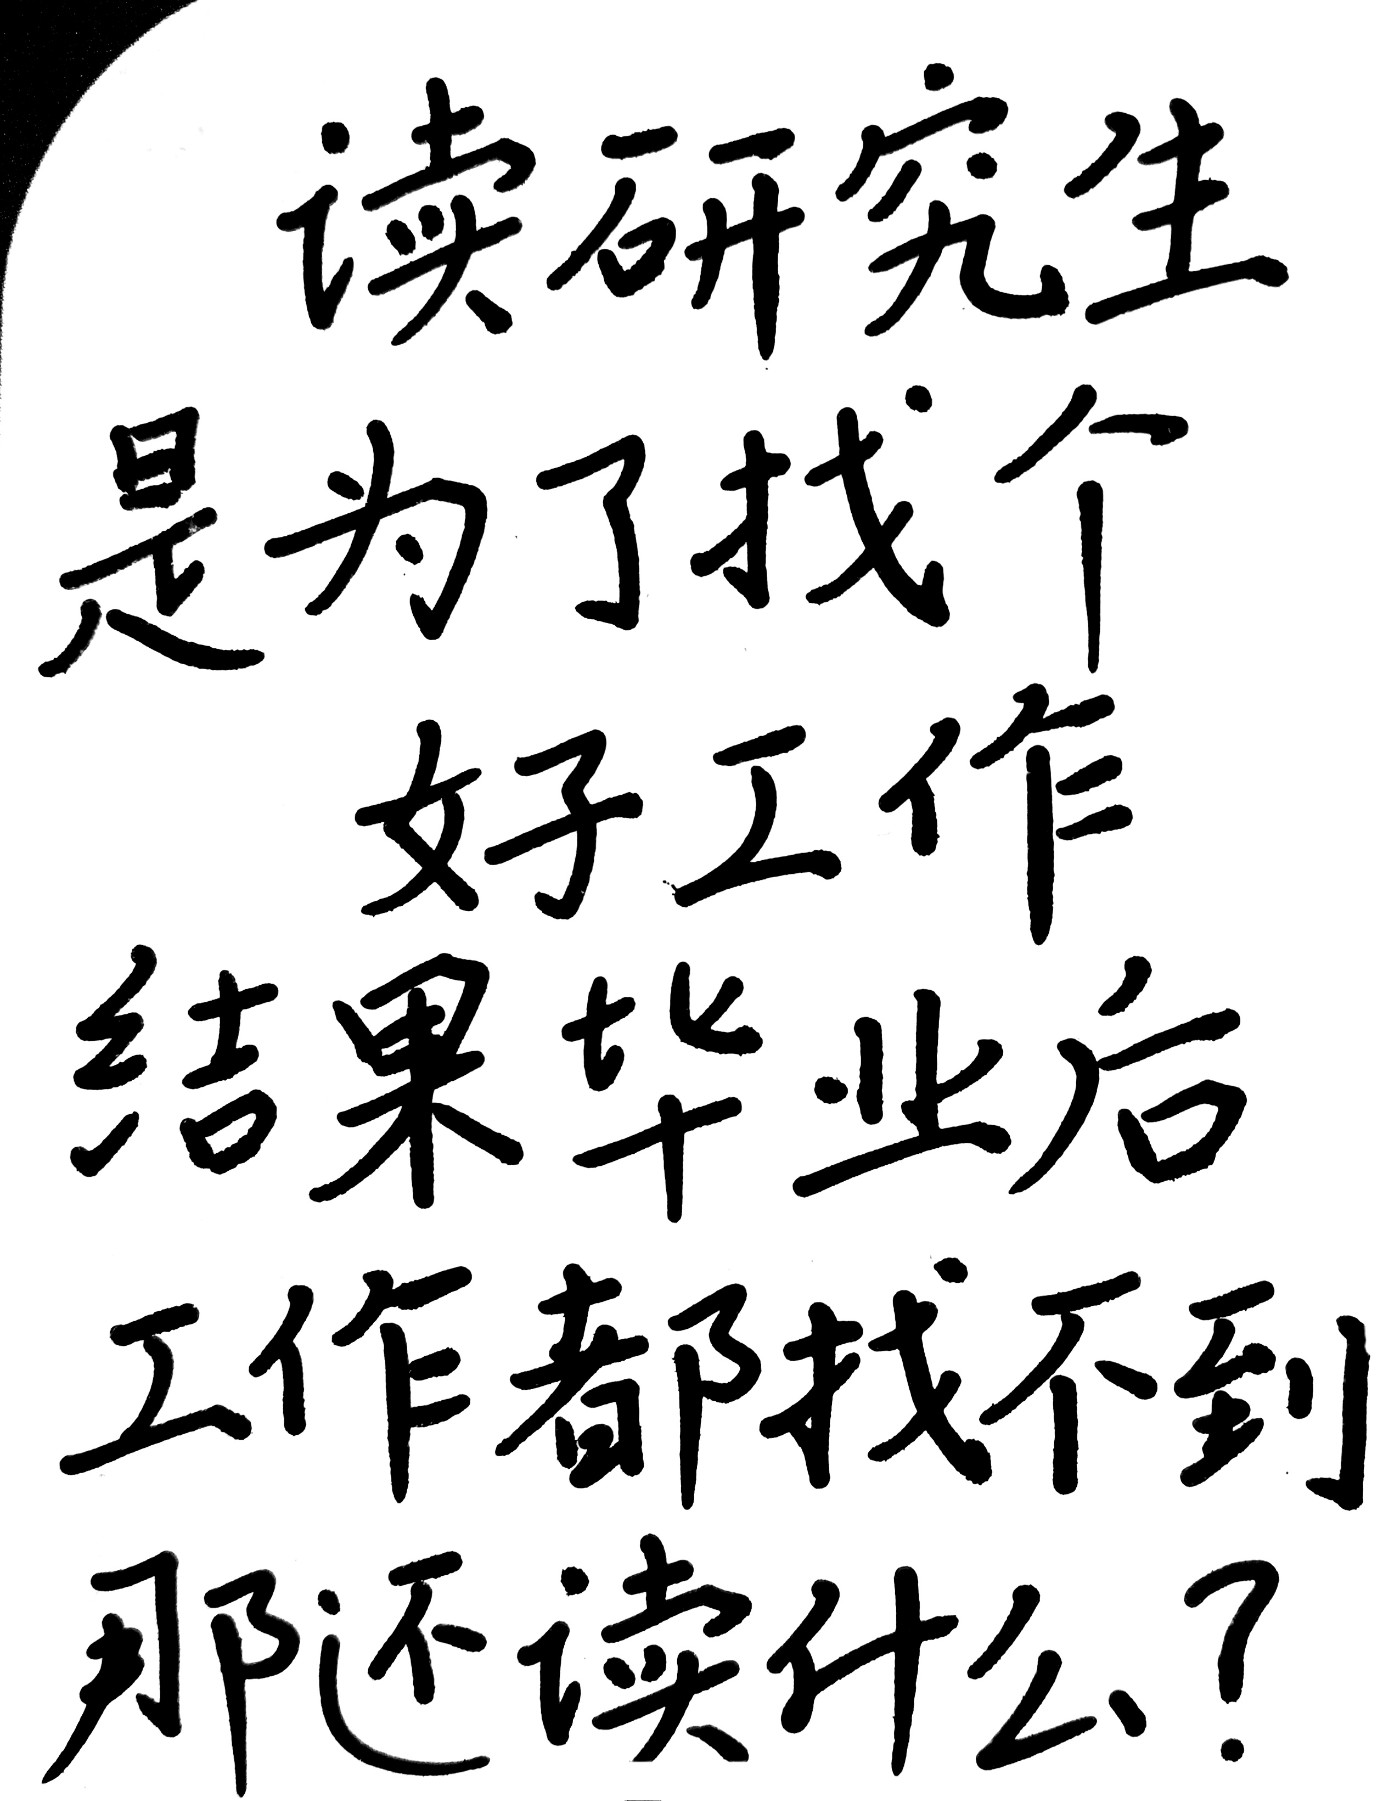 读研究生
是为了找个
好工作
结果毕业后
工作都找不到
那还读什么？